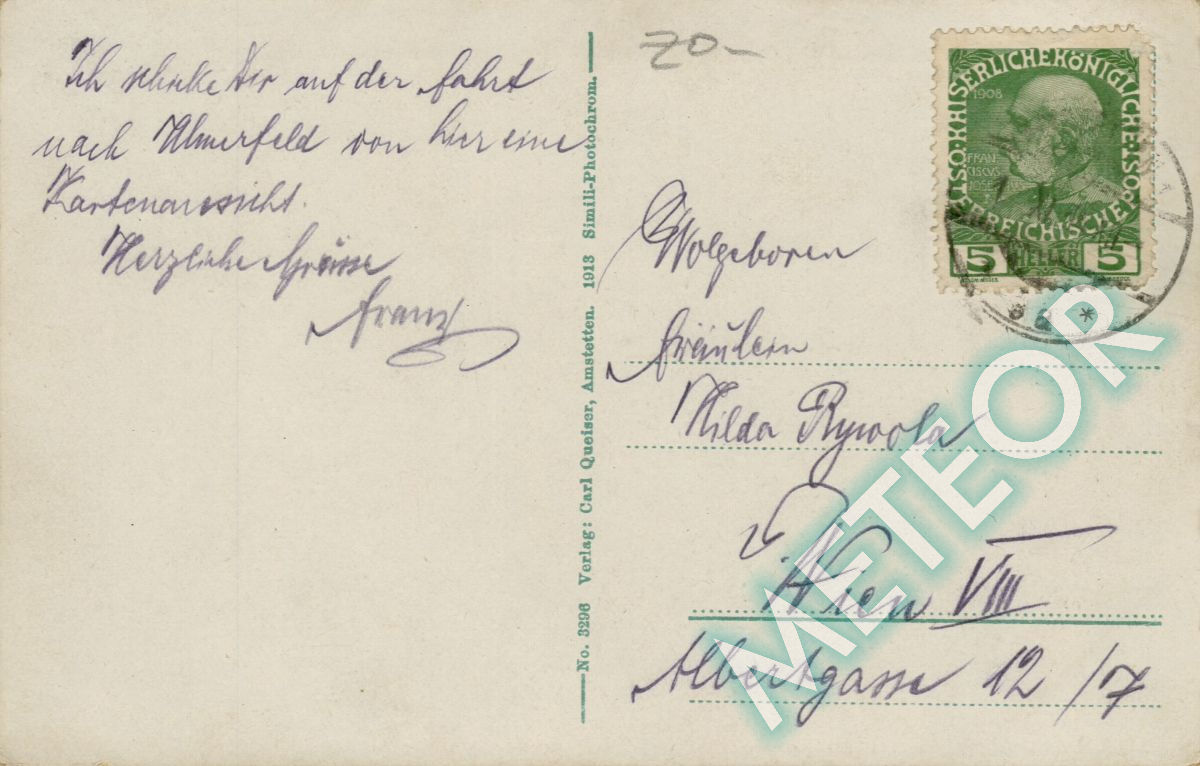 Ich schicke Dir auf der Fahrt
nach Ulmerfeld von hier eine
Kartenansicht.
Herzliche Grüsse
Franz
No. 3296 Verlag: Carl Queiser, Amstetten. 1913 Simili-Photochrom.
20-
K.K. ÖST. KAISERLICHE KÖNIGLICHE ÖSTERREICHISCHE POST
1908
FRAN
CISCVS
JOSEF I
5 HELLER 5
Wolgeboren
Fräulein
Hilda Rywola
Wien VIII
Albertgasse 12 /7
METEOR